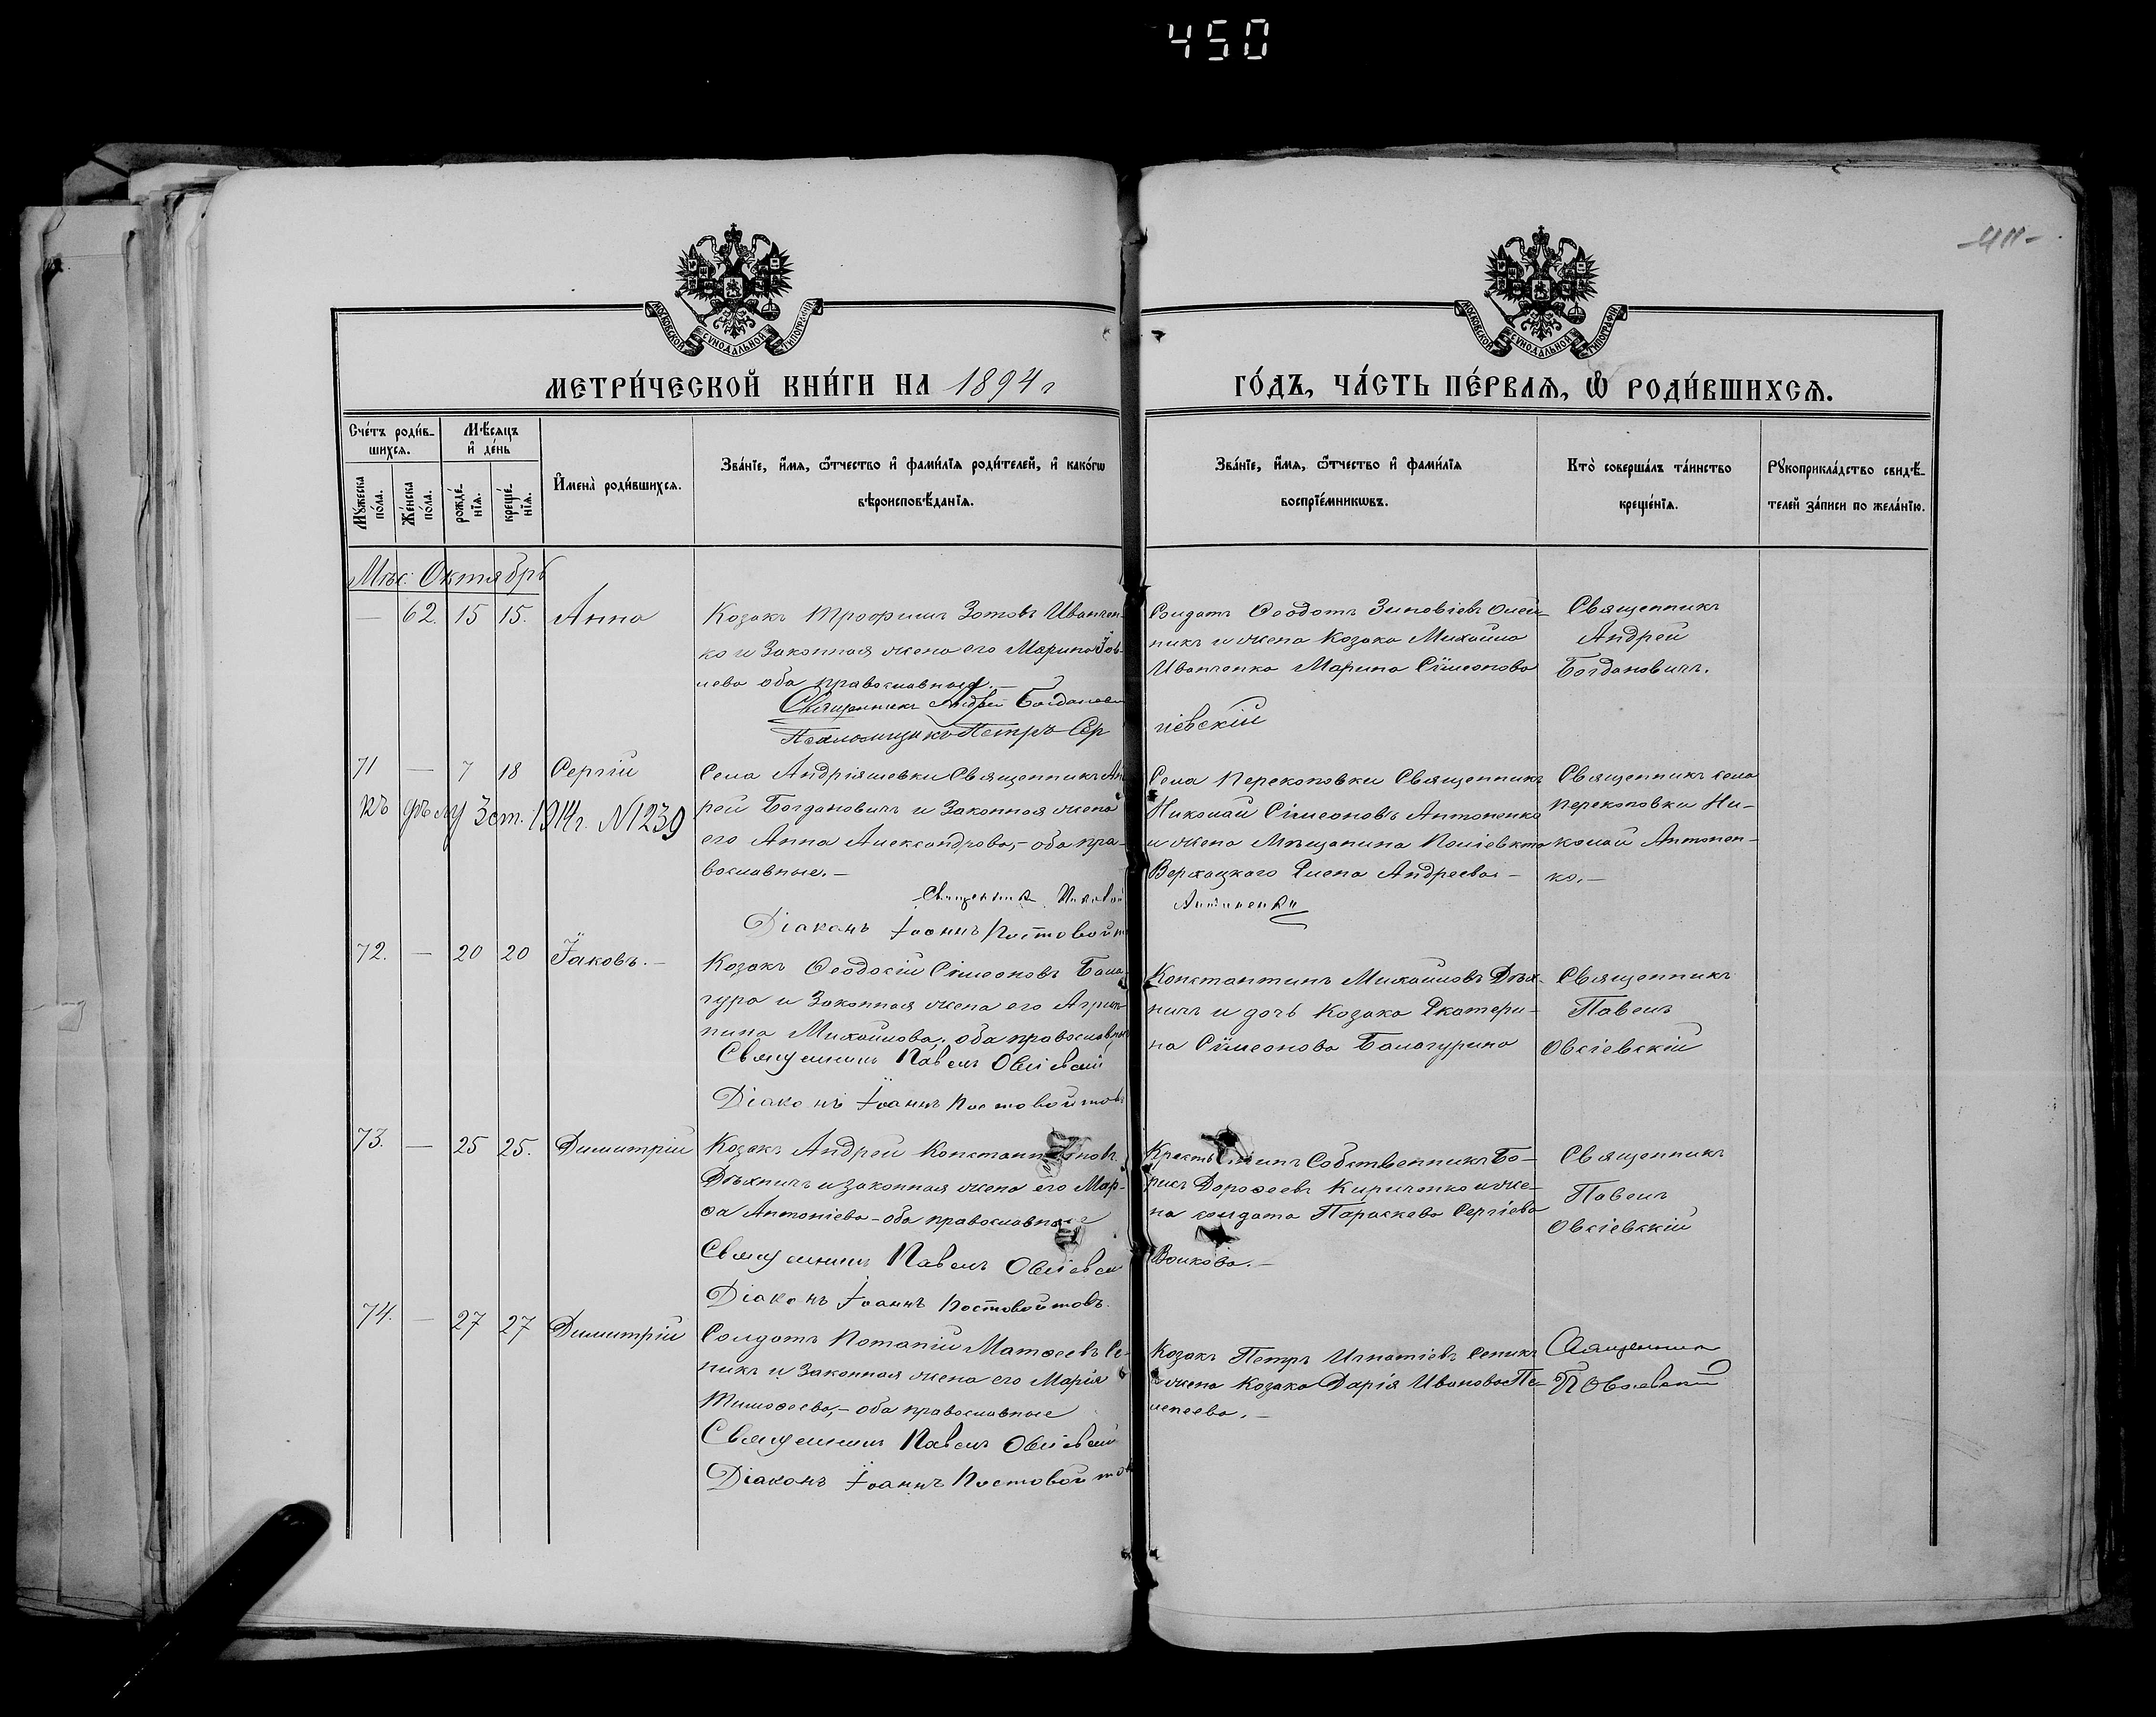 450
-411-
МОСКОВСКОЙ СѴНОДАЛЬНОЙ ТИПОГРАФІИ
МОСКОВСКОЙ СѴНОДАЛЬНОЙ ТИПОГРАФІИ
МЕТРИ́ЧЕСКОЙ КНИ́ГИ НА 1894 г
ГО́ДЪ, ЧА́СТЬ ПЕ́РВАѦ, Ѡ҆ РОДИ́ВШИХСѦ.
Сче́тъ роди́в-
шихсѧ.
Мꙋ́жеска по́ла.
Же́нска по́ла.
Мѣ́сѧцъ
и҆ де́нь
рожде́нїѧ.
креще́нїѧ.
И҆мена̀ роди́вшихсѧ.
Зва́нїе, и҆́мѧ, ѻ҆́тчество и҆ фами́лїѧ роди́телей, и҆ како́гѡ
вѣроисповѣ́данїѧ.
Зва́нїе, и҆́мѧ, ѻ҆́тчество и҆ фами́лїѧ
воспрїе́мникѡвъ.
Кто̀ соверша́лъ та́инство
креще́нїѧ.
Рꙋкоприкла́дство свидѣ́-
телей за́писи по жела́нїю.
Мѣс: Октябрь
— 62. 15 15. Анна
Козакъ Трофимъ Зотовъ Иванчен-
ко и Законная жена его Марина Іов-
лева оба православные.—
Священникъ Андрей Богданович
Псаломщикъ Петръ Сер
гіевскій
Солдатъ Ѳеодотъ Зиновіевъ Олей-
никъ и жена Козака Михаила
Иванченка Марина Сѵмеонова
Священникъ
Андрей
Богдановичъ.
71 — 7 18 Сергій
къ дѣлу 3 ст. 1914 г. №1239
Села Андріяшевки Священникъ Ан
рей Богдановичъ и Законная жена
его Анна Александрова,- оба пра-
вославные.—
Священникъ Николай
Антоненко
Діаконъ Іоаннъ Постовойт
Села Перекоповки Священникъ
Николай Сімеоновъ Антоненко
и жена Мѣщанина
Вержацкаго Елена Андреева —
Священникъ села
Перекоповки Ни-
колай Антонен-
ко.—
72. — 20 20 Іаковъ.—
Козакъ Ѳеодосій Сімеоновъ Бала-
гура и Законная жена его Агрип-
пина Михайлова; оба православны
Священникъ Павелъ Овсіевскій
Діаконъ Іоаннъ Постовойтовъ
Константинъ Михайловъ Дѣх-
ничъ и дочь Козака Екатери-
на Сѵмеонова Балагурина
Священникъ
Павелъ
Овсіевскій
73. — 25 25. Димитрій
Козакъ Андрей Константиновъ
Дѣхничъ и законная жена его Мар-
ѳа Антоніева - оба православные
Священникъ Павелъ Овсіевск
Діаконъ Іоаннъ Постовойтовъ.
Крестьянинъ Собственникъ Бо-
рисъ Дороѳеевъ Кириченко и же-
на солдата Параскева Сергіева
Волкова.—
Священникъ
Павелъ
Овсіевскій
74. — 27 27 Димитрій
Солдатъ Потапій Матѳеевъ Се-
никъ и Законная жена его Марія
Тимоѳеева,- оба православные
Священникъ Павелъ Овсіевскій
Діаконъ Іоаннъ Постовойтов
Козакъ Петръ Игнатіевъ Сеникъ
и жена Козака Дарія Иванова Пе-
лепеева.—
Священникъ
П Овсіевскій